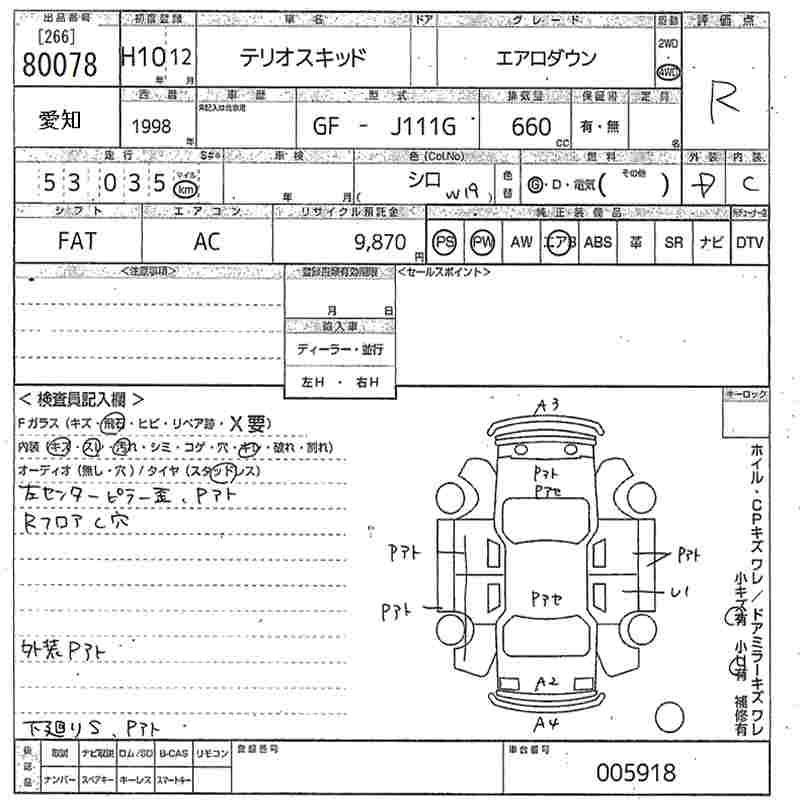 出品番号 初度登録 車名 ドア グレード 駆動 評価点
[266] 80078 H10年12月 テリオスキッド エアロダウン 2WD 4WD R
西暦 車歴 型式 排気量 保証書 定員
愛知 1998年 GF - J111G 660cc 有・無 名
走行 車検 色(Col.No) 燃料 外装 内装
53,035 マイル km 年 月 シロ W19 色替 G・D・電気(その他) D C
シフト エアコン リサイクル預託金 純正装備品
FAT AC 9,870円 PS PW AW エアB ABS 革 SR ナビ DTV
<注意事項> 登録書類有効期限 <セールスポイント>
月 日
輸入車
ディーラー・並行
左H ・ 右H
<検査員記入欄>
Fガラス(キズ・飛石・ヒビ・リペア跡・X要)
内装(キズ・スレ・汚れ・シミ・コゲ・穴・キレ・破れ・割れ)
オーディオ(無し・穴)/タイヤ(スタッドレス)
左センターピラー歪、Pアト
RフロアC穴
外装Pアト
下廻りS、Pアト
A3
Pアト
Pアセ
Pアト
Pアト
Pアト
Pアセ
U1
A2
A4
キーロック
ホイル・CPキズワレ/ドアミラーキズワレ
小キズ有 小凹有 補修有
後部品 取説 ナビ取説 ロム/SD B-CAS リモコン 登録番号 車台番号
ナンバー スペアキー キーレス スマートキー 005918